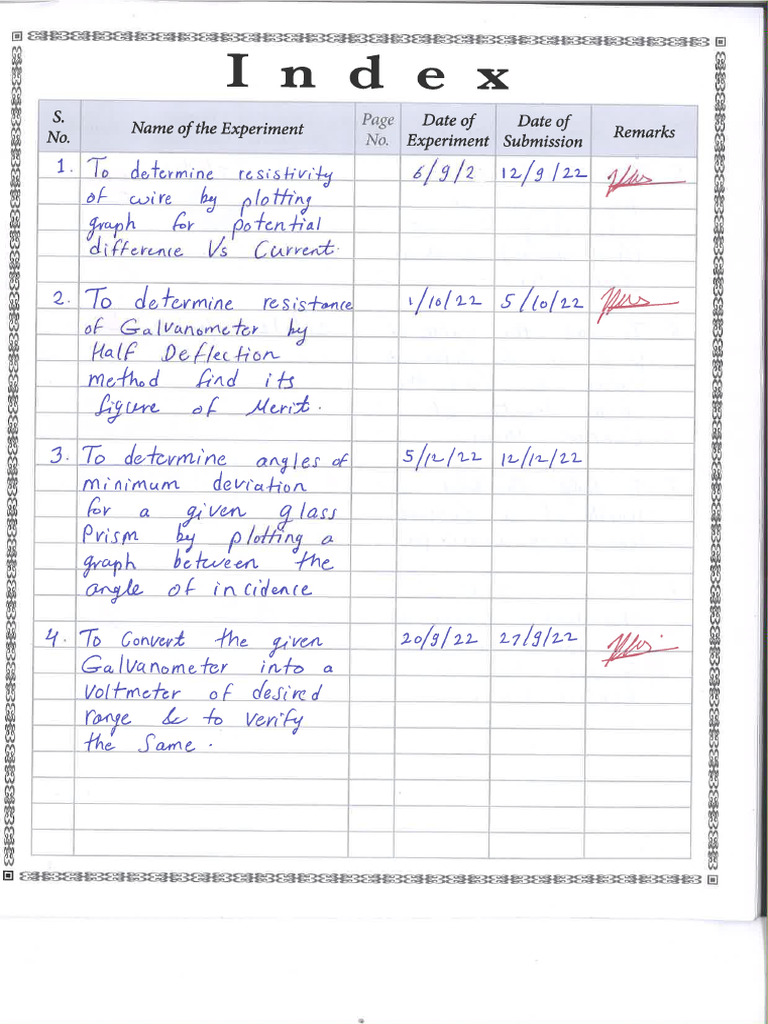 Index
S. No. Name of the Experiment Page No. Date of Experiment Date of Submission Remarks
1. To determine resistivity 6/9/2 12/9/22
of wire by plotting
graph for potential
difference Vs Current.
2. To determine resistance 1/10/22 5/10/22
of Galvanometer by
Half Deflection
method find its
figure of Merit.
3. To determine angles of 5/12/22 12/12/22
minimum deviation
for a given glass
Prism by plotting a
graph between the
angle of incidence
4. To Convert the given 20/9/22 27/9/22
Galvanometer into a
voltmeter of desired
range & to verify
the Same.